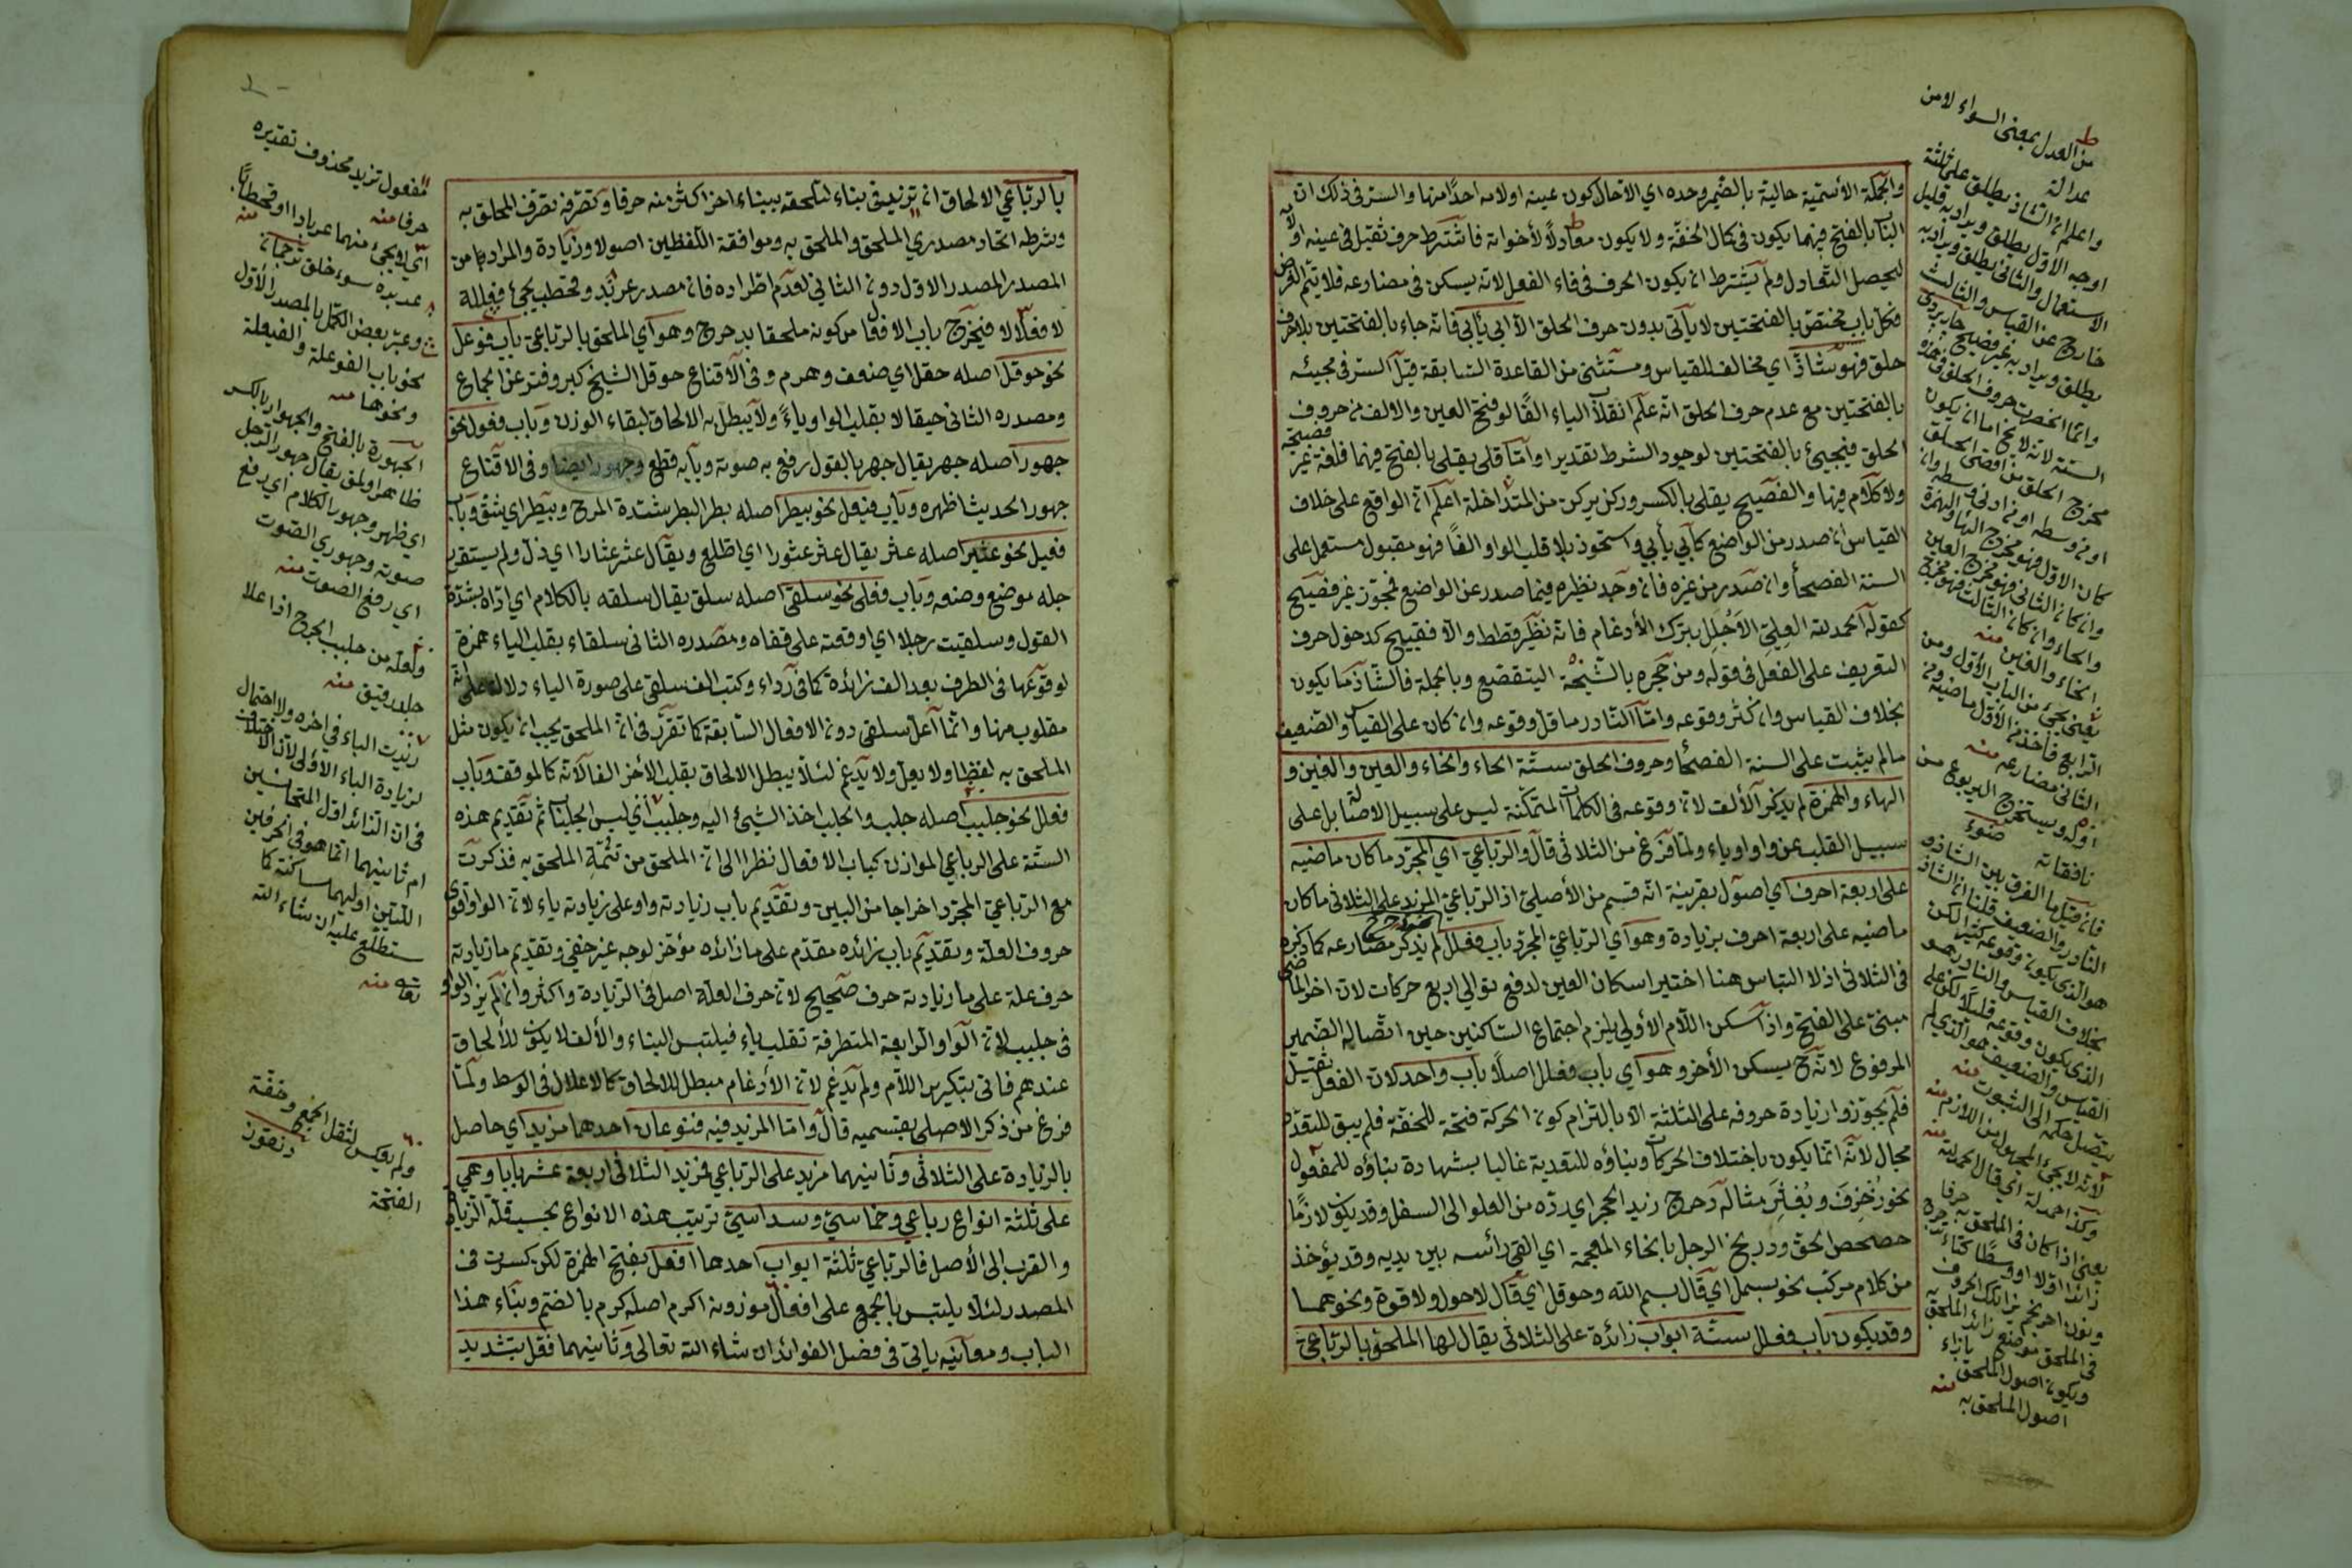 والجملة الاسمية حالية بالضمير وحده اي الا حال كون عينه او لامه احدًا منها والسر في ذلك ان
الباب بالفتح فيهما يكون في كمال الخفة ولا يكون معادلًا لأخواته فاشترط حرف ثقيل في عينه او لامه
ليحصل التعادل ولم يشترط ان يكون الحرف في فاء الفعل لانه يسكن في مضارعه فلا يتم الغرض
فكل باب مختص بالفتحتين لا يأتي بدون حرف الحلق الا ابي يأبي فانه جاء بالفتحتين بلا حرف
حلق فهو شاذ اي مخالف للقياس ومستثنى من القاعدة السابقة قيل السر في مجيئه
بالفتحتين مع عدم حرف الحلق انه علم انقلاب الياء الفًا لو فتح العين والالف من حروف
الحلق فيجيئ بالفتحتين لوجود الشرط تقديرا واما قلى يقلى بالفتح فيهما فلغة غير فصيحة
ولا كلام فيها والفصيح يقلى بالكسر وركن يركن من المتداخلة اعلم ان الواقع على خلاف
القياس ان صدر من الواضع كأبي يأبي واستحوذ بلا قلب الواو الفًا فهو مقبول مستعمل على
السنة الفصحأ وان صدر من غيره فان وجد نظيره فيما صدر عن الواضع فمجوز غير فصيح
كقوله الحمد لله العلي الاجلل بترك الأدغام فانه نظير قطط والا فقبيح كدخول حرف
التعريف على الفعل في قوله ومن جحره بالشيخة اليتقصع وبالجملة فالشاذ ما يكون
بخلاف القياس وان كثر وقوعه واما النادر ما قل وقوعه وان كان على القياس والضعيف
ما لم يثبت على السنة الفصحأ وحروف الحلق ستة الحاء والخاء والعين والغين و
الهاء والهمزة لم يذكر الألف لان وقوعه في الكلمات المتمكنة ليس على سبيل الاصالة بل على
سبيل القلب عن واو او ياء ولما فرغ من الثلاثي قال والرباعي اي المجرد ما كان ماضيه
على اربعة احرف اي اصول بقرينة انه قسم من الأصلي اذ الرباعي المزيد على الثلاثي ما كان
ماضيه على اربعة احرف بزيادة وهو اي الرباعي المجرد باب فعلل لم يذكر مضارعه كما ذكره
في الثلاثي اذ لا التباس هنا اختير اسكان العين لدفع توالي اربع حركات لان اخر الماضي
مبني على الفتح واذا سكن اللام الأولي يلزم اجتماع الساكنين حين اتصاله الضمير
المرفوع لانه ح يسكن الأخر وهو اي باب فعلل اصلًا باب واحد لان الفعل ثقيل
فلم يجوزوا زيادة حروفه على الثلثة الا بالتزام كون الحركة فتحة للخفة فلم يبق للتعدد
مجال لانه انما يكون باختلاف الحركات وبناؤه للتعدية غالبا بشهادة بناؤه للمفعول
نحو زُخْرِفَ وبُعْثِرَ مثاله دحرج زيد الحجر اي رده من العلو الى السفل وقد يكون لازمًا
حصحص الحق ودربخ الرجل بالخاء المعجمة اي القى رأسه بين يديه وقد يؤخذ
من كلام مركب نحو بسمل اي قال بسم الله وحوقل اي قال لا حول ولا قوة ونحوهما
وقد يكون باب فعلل ستة ابواب زائدة على الثلاثي يقال لها الملحق بالرباعي
من العدل بمعنى السواء لا من
عدالة
واعلم ان الشاذ يطلق على ثلثة
اوجه الاول يطلق ويراد به قليل
الاستعمال والثاني يطلق ويراد به
خارج عن القياس والثالث
يطلق ويراد به غير فصيح
وانما انحصرت حروف الحلق في هذه
الستة لانه لا يخ اما ان يكون
مخرج الحلق من اقصى الحلق
او من وسطه او من ادنى وسطه وان
كان الاول فهو مخرج الهاء والهمزة
وان كان الثاني فهو مخرج العين
والحاء وان كان الثالث فهو مخرج
الخاء والغين منه
يعني يجئ من الباب الاول ومن
الرابع فاخذ من الأول ماضيه ومن
الثاني مضارعه منه
اوله ويستخرج اليربوع من
نافقائه
فان قيل ما الفرق بين الشاذ و
النادر والضعيف قلنا ان الشاذ
هو الذي يكون وقوعه كثيرا لكن
بخلاف القياس والنادر هو
الذي يكون وقوعه قليلًا لكن على
القياس والضعيف هو الذي لم
يتصل حكمه الى الثبوت منه
لانه لا يجئ المجهول من اللازم منه
وكذا حمدلة اي قال الحمد لله منه
يعني اذا كان في الملحق به حرفا
زائدا اولًا او وسطًا كتاء تدحرج
ونون احرنجم يزاد تلك الحروف
في الملحق موضع زائد الملحق به
ويكون اصول الملحق بازاء
اصول الملحق به منه
بالرباعي الالحاق ان تزيد في بناء لتلحقه ببناء اخر اكثر منه حرفا وتصرفه تصرف الملحق به
وشرطه اتحاد مصدري الملحق والملحق به وموافقة اللفظين اصولا وزيادة والمراد من
المصدر المصدر الاول دون الثاني لعدم اطراده فان مصدر عربد وقحطب يجئ فعللة
لا فعلالا فيخرج باب الافعال من كونه ملحقا بدحرج وهو اي الملحق بالرباعي باب فوعل
نحو حوقل اصله حقل اي ضعف وهرم وفي الأقناع حوقل الشيخ كبر وفتر عن الجماع
ومصدره الثاني حيقالا بقلب الواو ياءً ولا يبطل به الالحاق لبقاء الوزن وباب فعول نحو
جهور اصله جهر يقال جهر بالقول رفع به صوته وبابه قطع وجهور ايضا وفي الاقناع
جهور الحديث اظهره وباب فيعل نحو بيطر اصله بطر البطر شدة المرح وبيطر اي شق وباب
فعيل نحو عثير اصله عثر يقال عثر عثورا اي اطلع ويقال عثر عثارا اي ذل ولم يستقر
رجله موضع وضعه وباب فعلى نحو سلقى اصله سلق يقال سلقه بالكلام اي اذاه بشدة
القول وسلقيت رجلا اي اوقعته على قفاه ومصدره الثاني سلقاء بقلب الياء همزة
لوقوعها في الطرف بعد الف زائدة كما في رداء وكتب الف سلقى على صورة الياء دلالة على انه
مقلوب منها وانما اعل سلقى دون الافعال السابقة كما تقرر في ان الملحق يجب ان يكون مثل
الملحق به لفظا ولا يعل ولا يدغم لئلا يبطل الالحاق بقلب الأخر الفا لانه كالموقف وباب
فعلل نحو جلبب اصله جلب والجلب اخذ الشيئ اليه وجلبب اي لبس الجلباب ثم تقديم هذه
الستة على الرباعي الموازن كباب الافعال نظرا الى ان الملحق من تتمة الملحق به فذكرت
مع الرباعي المجرد اخراجا من البين وتقديم باب زيادته واو على زيادته ياء لان الواو اقوى
حروف العلة وتقديم باب زائده مقدم على ما زائده مؤخر لوجه غير خفي وتقديم ما زيادته
حرف علة على ما زيادته حرف صحيح لان حرف العلة اصل في الزيادة واكثر وان لم يزد الواو
في جلبب لان الواو الرابعة المتطرفة تقلب ياء فيلتبس البناء والألف لا يكون للألحاق
عندهم فاتى بتكرير اللام ولم يدغم لان الأدغام مبطل للالحاق كالاعلال في الوسط ولما
فرغ من ذكر الاصلي بقسميه قال واما المزيد فيه فنوعان احدهما مزيد اي حاصل
بالزيادة على الثلاثي وثانيهما مزيد على الرباعي فمزيد الثلاثي اربعة عشر بابا وهي
على ثلثة انواع رباعي وخماسي وسداسي ترتيب هذه الانواع بحسب قلة الزيادة
والقرب الى الأصل فالرباعي ثلثة ابواب احدها افعل بفتح الهمزة لكن كسرت في
المصدر لئلا يلتبس بالجمع على افعال موزونه اكرم اصله كرم بالضم وبناء هذا
الباب ومعانيه يأتي في فصل الفوائد ان شاء الله تعالى وثانيهما فعل بتشديد
مفعول تزيد محذوف تقديره
حرفا منه
اي لا يجئ منهما عربادا او قحطابًا منه
عربدة سوء خلق
وعبر بعض الكمل بالمصدر الأول
نحو باب الفوعلة والفيعلة
ونحوها منه
الجهورة بالفتح والجهوار بالكسر
ظاهر اولمق يقال جهور الرجل
اي ظهر وجهور بالكلام اي رفع
صوته وجهوري الصوت
اي رفع الصوت منه
ولعله من جلب الجرح اذا علا
جلد رقيق منه
زيدت الباء في اخره ولا احتمال
لزيادة الباء الاولى لان الاختلاف
في ان الزائد اول المتجانسين
ام ثانيهما انما هو في الحرفين
اللتين اوليهما ساكنة كما
ستطلع عليه ان شاء الله
تعالى منه
ولم يعكس لثقل الجمع وخفة
الفتحة